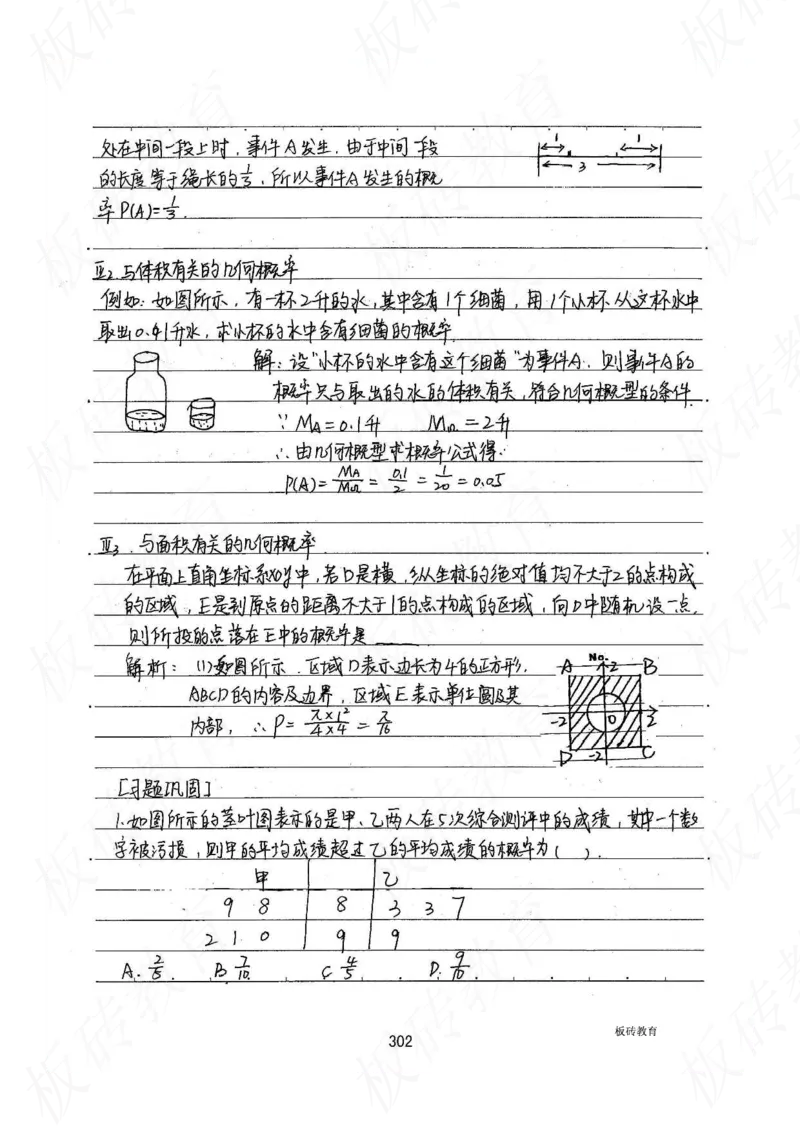 处在中间一段上时，事件A发生，由于中间一段
1 1
3
的长度等于绳长的1/3，所以事件A发生的概
率P(A)=1/3.
Ⅲ2 与体积有关的几何概率
例如：如图所示，有一杯2升的水，其中含有1个细菌，用1个小杯从这杯水中
取出0.1升水，求小杯的水中含有细菌的概率.
解：设"小杯的水中含有这个细菌"为事件A，则事件A的
概率只与取出的水的体积有关，符合几何概型的条件
∵ MA=0.1升 MΩ=2升
∴由几何概型求概率公式得.
P(A)=MA/MΩ=0.1/2=1/20=0.05
Ⅲ3. 与面积有关的几何概率
在平面上直角坐标系xoy中，若D是横，纵坐标的绝对值均不大于2的点构成
的区域，E是到原点的距离不大于1的点构成的区域，向D中随机设一点，
则所投的点落在E中的概率是____
No.
解析：(1)如图所示，区域D表示边长为4的正方形，
A 2 B
ABCD的内容及边界，区域E表示单位圆及其
-2 O 2
内部，∴P=π×1²/4×4=π/16
D -2 C
[习题巩固]
1.如图所示的茎叶图表示的是甲、乙两人在5次综合测评中的成绩，其中一个数
字被污损，则甲的平均成绩超过乙的平均成绩的概率为( ).
甲 乙
9 8 8 3 3 7
2 1 0 9 9
A. 2/5. B 7/10. C 4/5. D. 9/10.
302
板砖教育